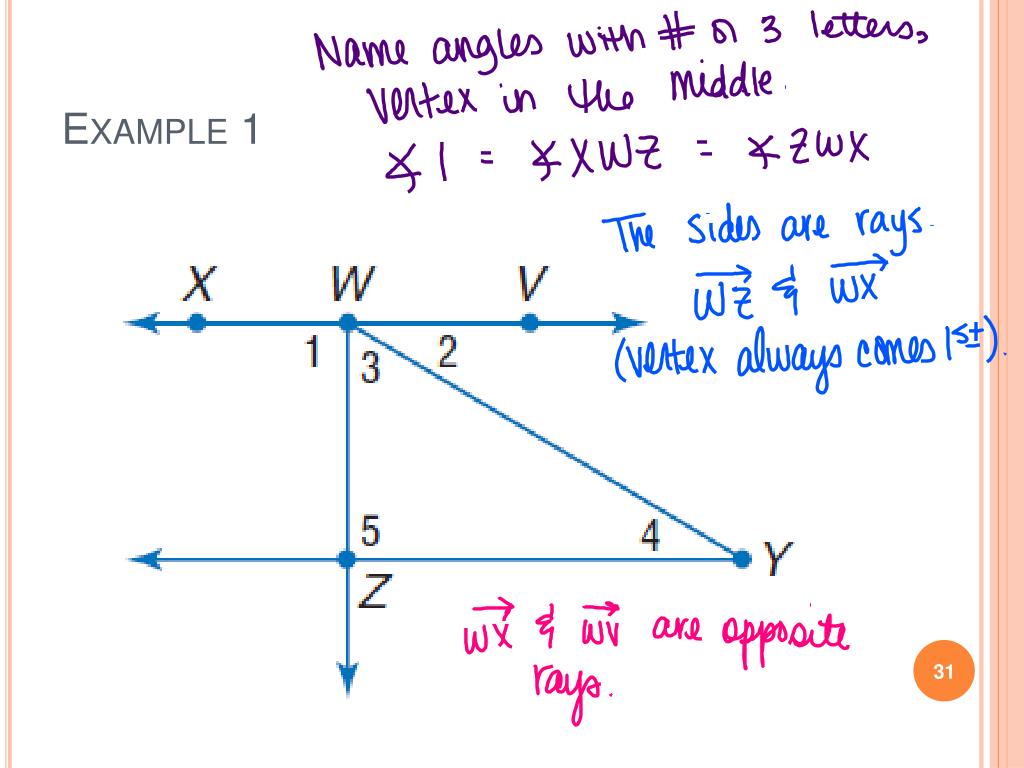 Name angles with # or 3 letters,
vertex in the middle.
EXAMPLE 1
∡1 = ∡XWZ = ∡ZWX
The sides are rays.
WZ & WX
(vertex always comes 1st).
X W V
1 3 2
5 4
Y
Z
WX & WV are opposite
rays.
31